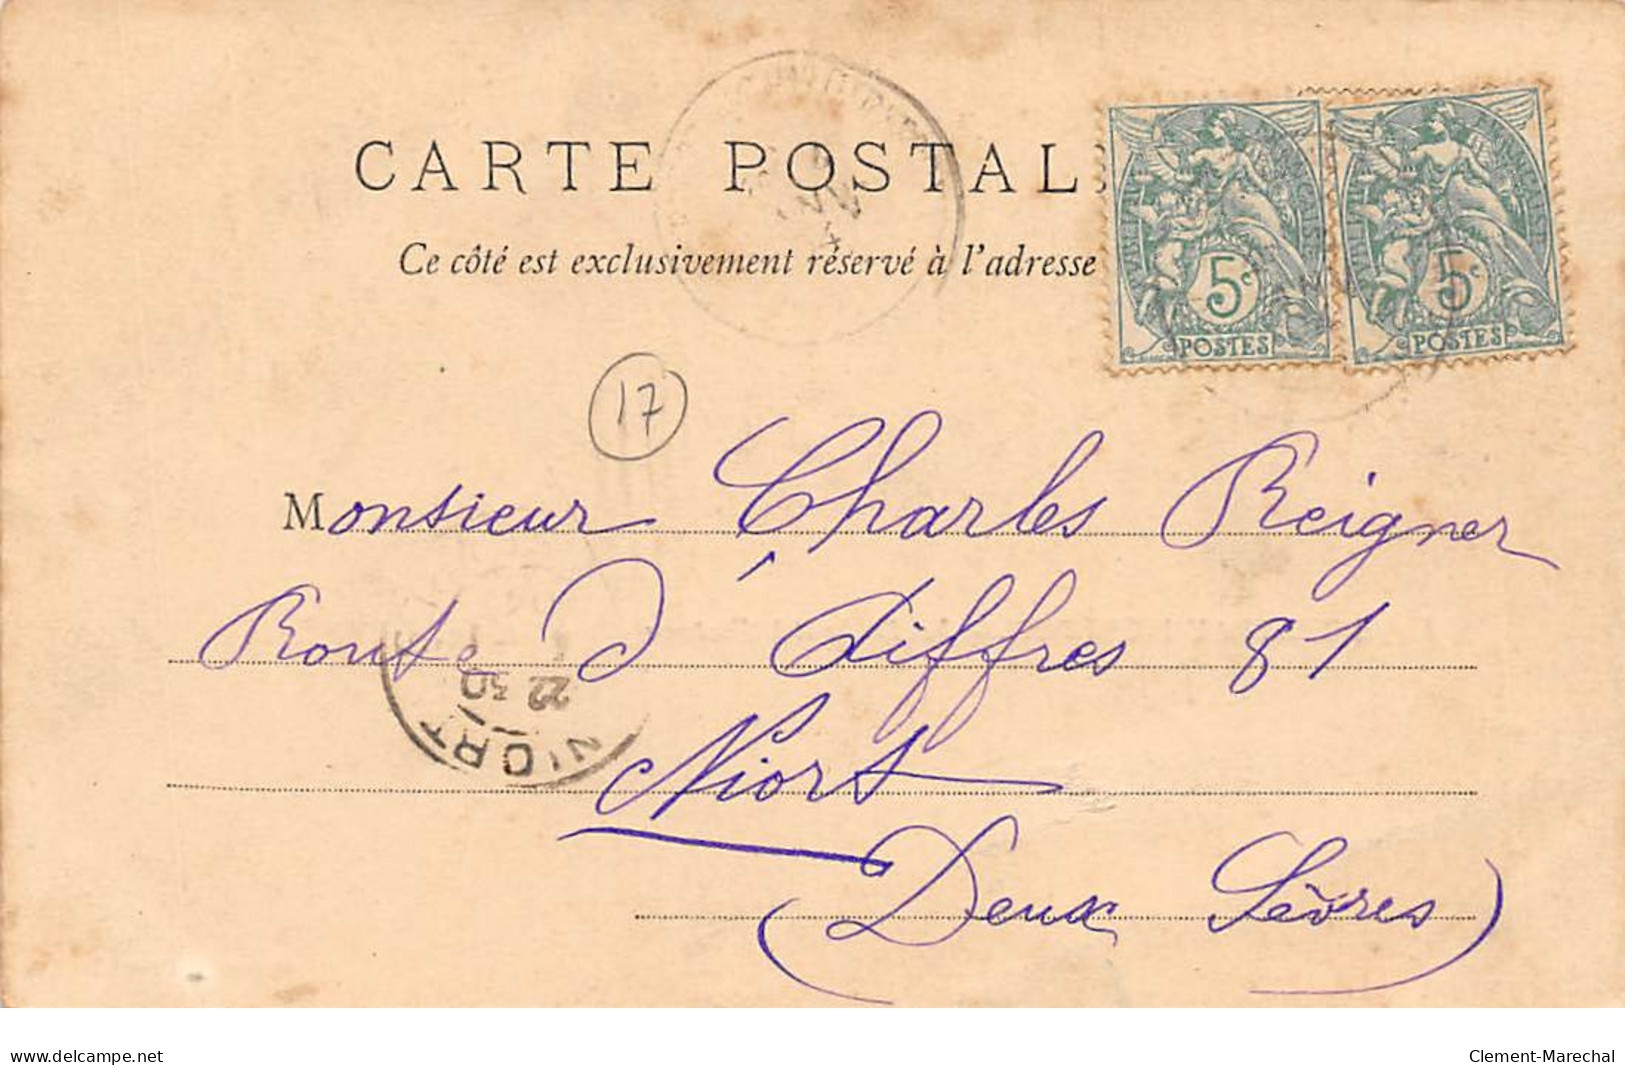 CARTE POSTAL
RÉPUBLIQUE FRANÇAISE
5c
POSTES
5c
POSTES
Ce côté est exclusivement réservé à l'adresse
17
Monsieur Charles Reigner
Route d'Aiffres 81
22 30
NIORT
Niort
(Deux Sèvres)
www.delcampe.net
Clement-Marechal